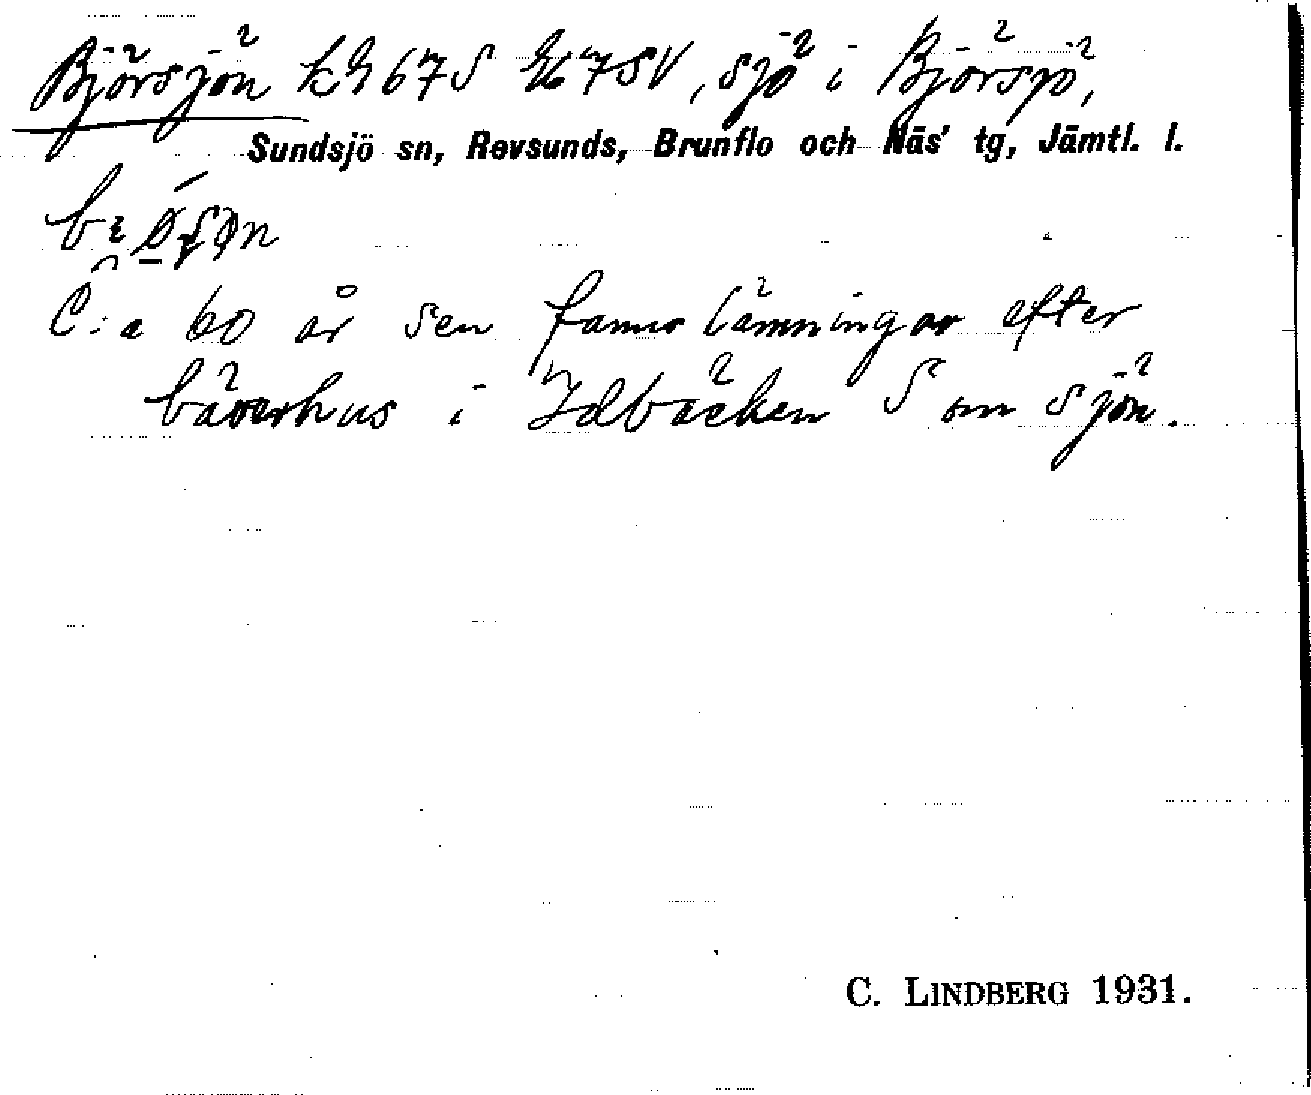 Björsjön k967S 967SV, sjö i Björsjö,
Sundsjö sn, Revsunds, Brunflo och Näs' tg, Jämtl. l.
C:a 60 år sen fanns lämningar efter
bäverhus i Idbäcken S om sjön.
C. LINDBERG 1931.